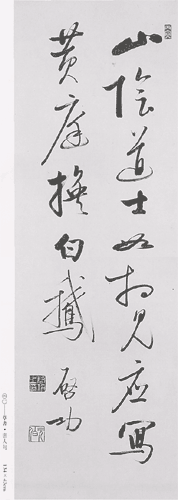 山陰道士如相見應寫
黄庭換白鵝
啓功